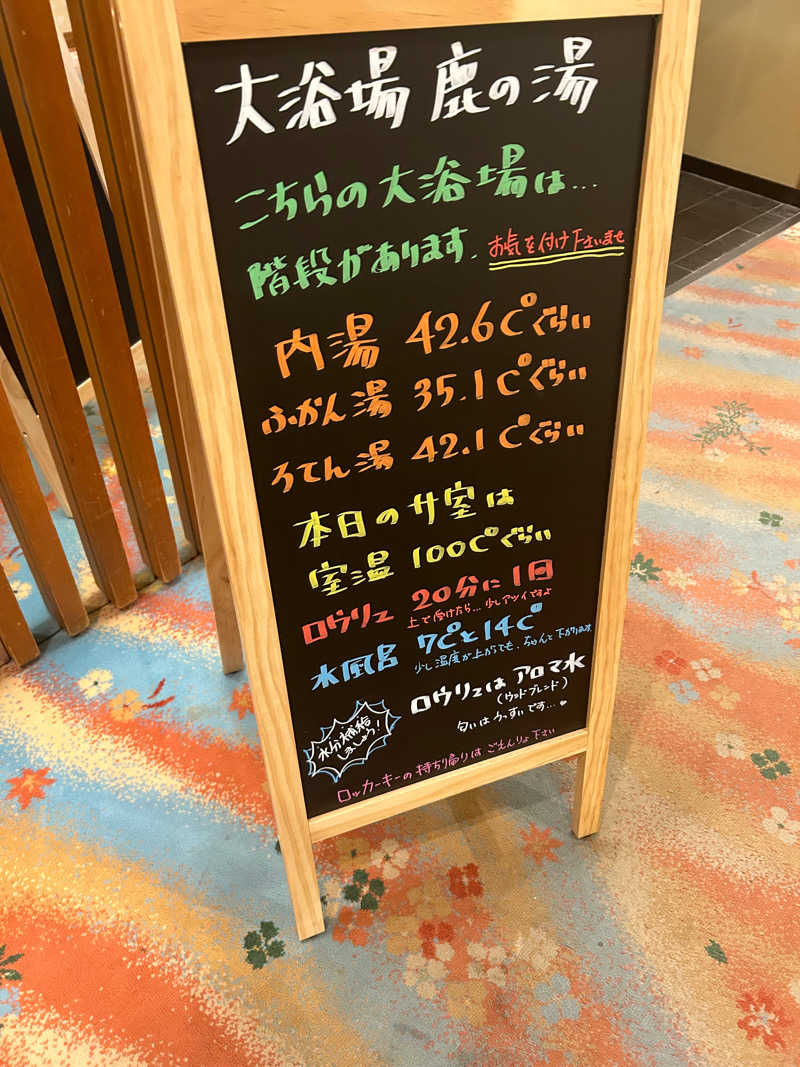 大浴場 鹿の湯
こちらの大浴場は...
階段があります。お気を付け下さいませ
内湯 42.6℃ぐらい
ふかん湯 35.1℃ぐらい
ろてん湯 42.1℃ぐらい
本日のサ室は
室温 100℃ぐらい
ロウリュ 20分に1回
上で受けたら...少しアツイですよ
水風呂 7℃と14℃
少し温度が上がっても、ちゃんと下がります
ロウリュは アロマ水
(ウッドブレンド)
匂いは うっすいです...♥
水分補給
しましょう!
ロッカーキーの持ち帰りは ごえんりょ下さい